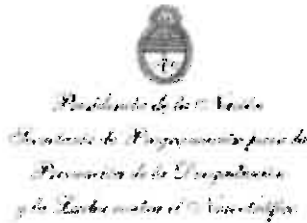 Presidencia de la Nación
Secretaría de Programación para la
Prevención de la Drogadicción
y la Lucha contra el Narcotráfico